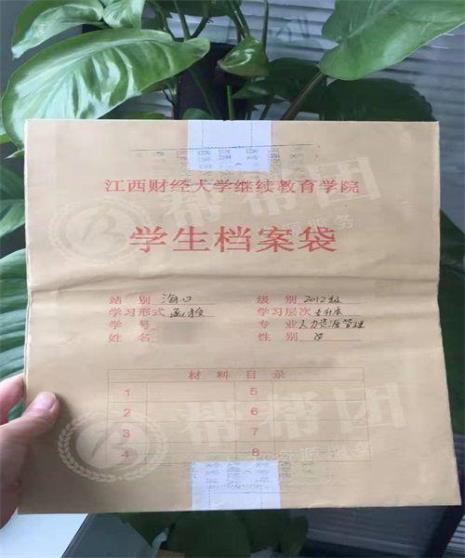 江西财经大学继续教育学院
学生档案袋
站 别 海口 级 别 2012级
学习形式 函授 学习层次 专升本
学 号 专 业 人力资源管理
姓 名 性 别
材 料 目 录
1 5
2 6
3 7
4 8
帮帮团
帮帮团